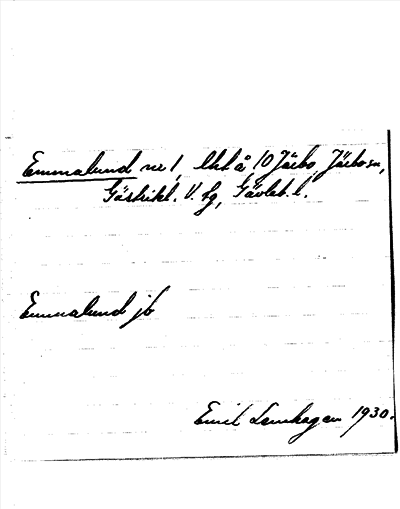 Emmalund nr 1, lht å 10 Järbo, Järbo sn,
Gästrikl. V. tg, Gävleb. l.
Emmalund jb
Emil Lannhagen 1930.